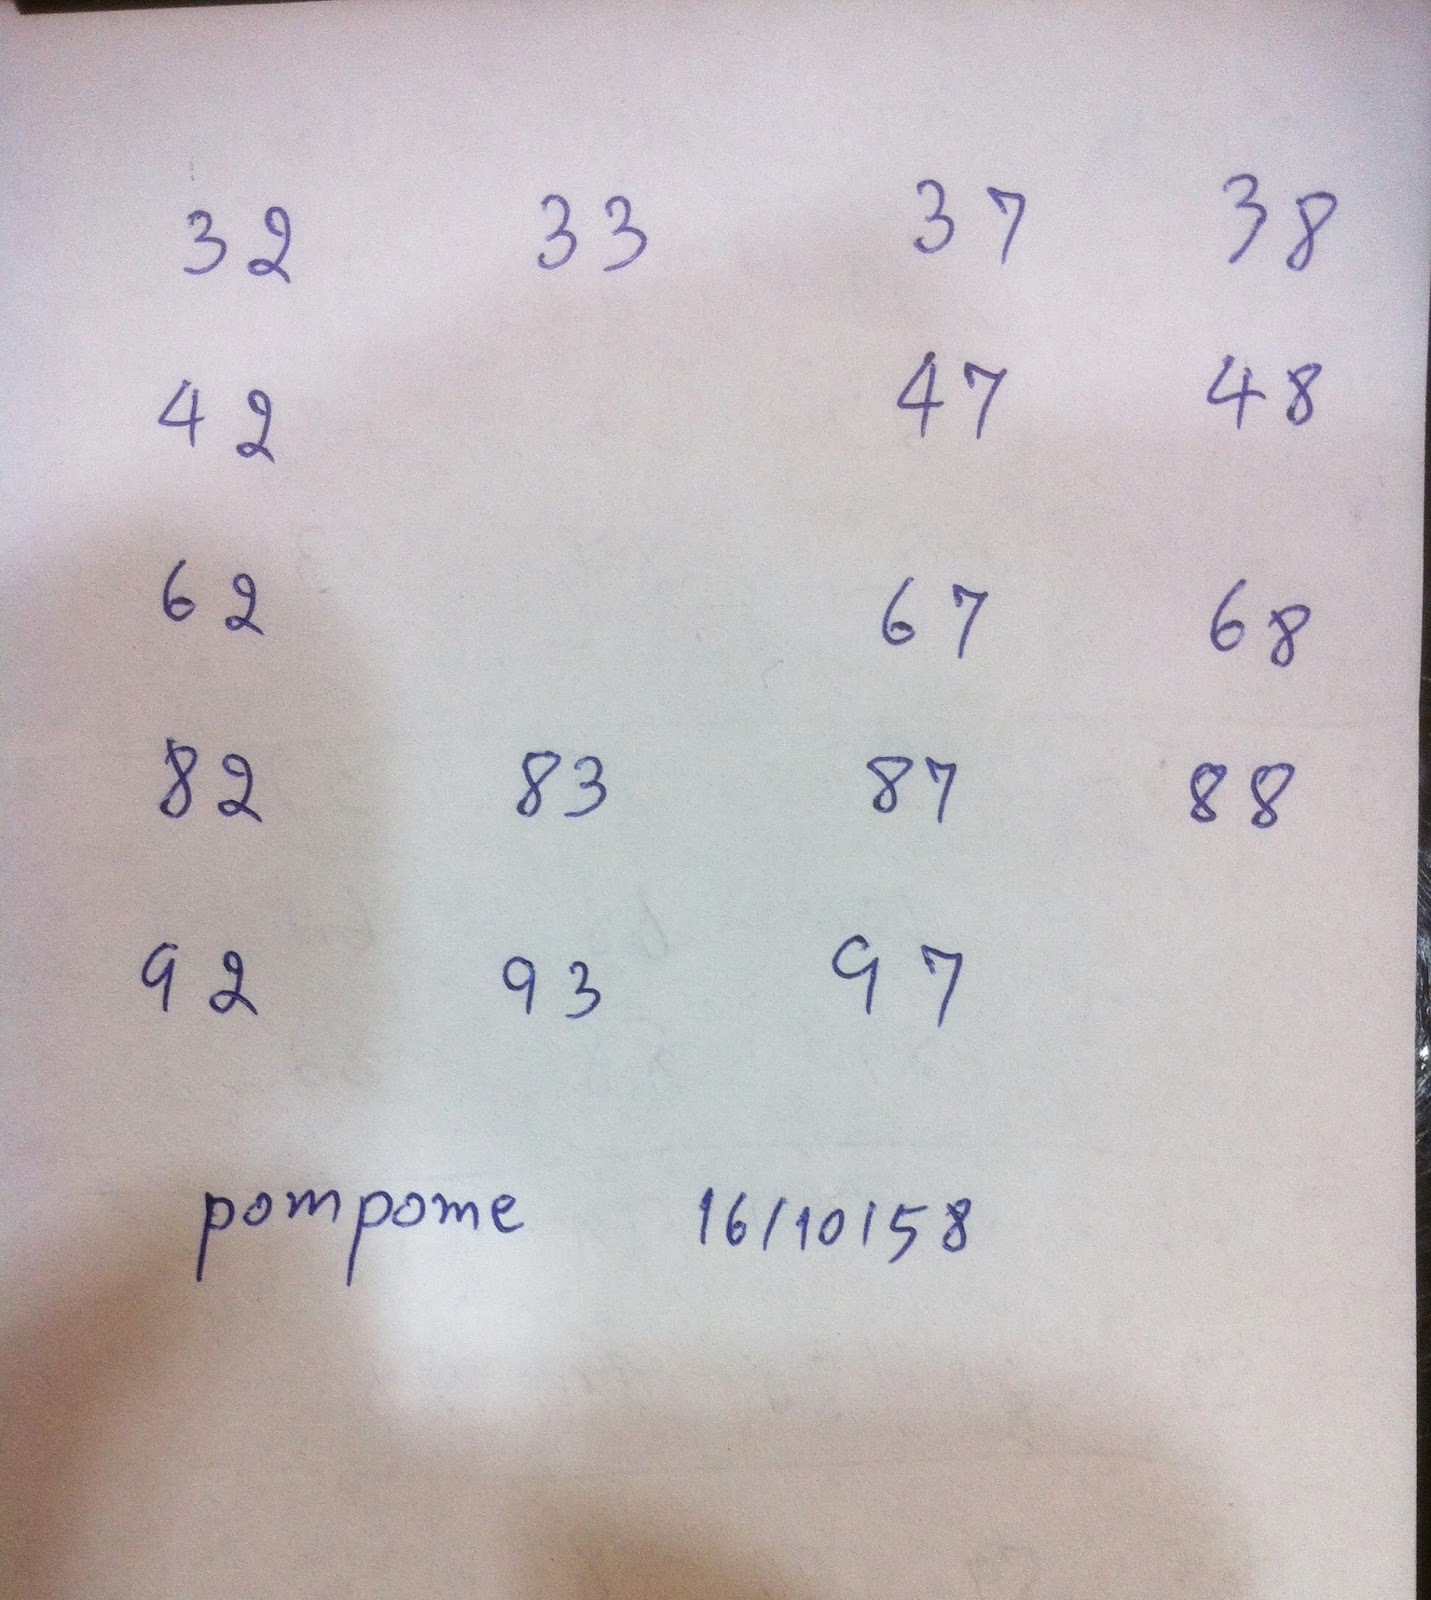 32 33 37 38
42 47 48
62 67 68
82 83 87 88
92 93 97
pompome 16/10/58